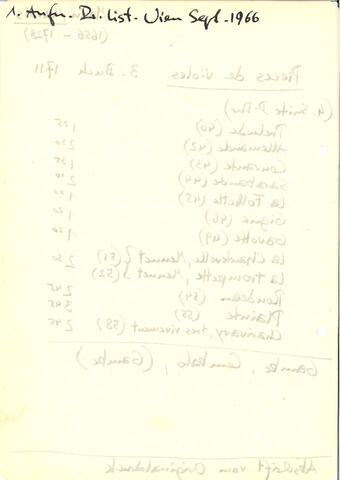 1. Aufn. Dr. List. Wien Sept. 1966
(1656 - 1728)
Pieces de Violes 3. Buch 1711
(4. Suite D-Dur)
Prelude (40) 1 25
Allemande (42) 2 30
Courante (43) 1 35
Sarabande (44) 2 10
La Folhette (45)
Gigue (46) 1 20
Gavotte (49) 1 20
La Chanterelle, Menuet (51) 2 50
La trompette, Menuet (52)
Rondeau (54) 2 45
Plainte (55) 3 45
Charivary, tres vivement (58) 2 45
Gambe, Cembalo, (Gambe)
Abschrift vom Originaldruck